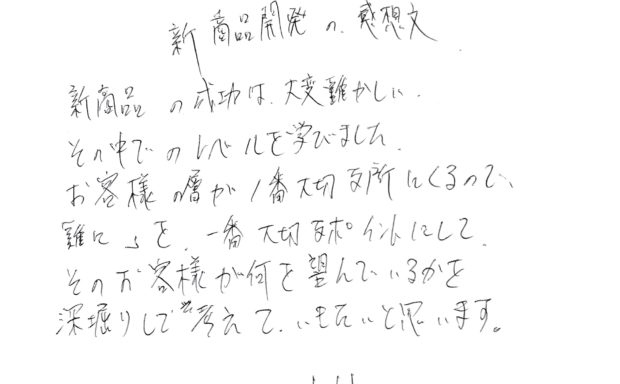 新商品開発の感想文
新商品の成功は、大変難かしい。
その中でのレベルを学びました。
お客様の層が1番大切な所にくるので、
誰に を、一番大切なポイントにして、
そのお客様が何を望んでいるかを
深堀りして考えて、いきたいと思います。